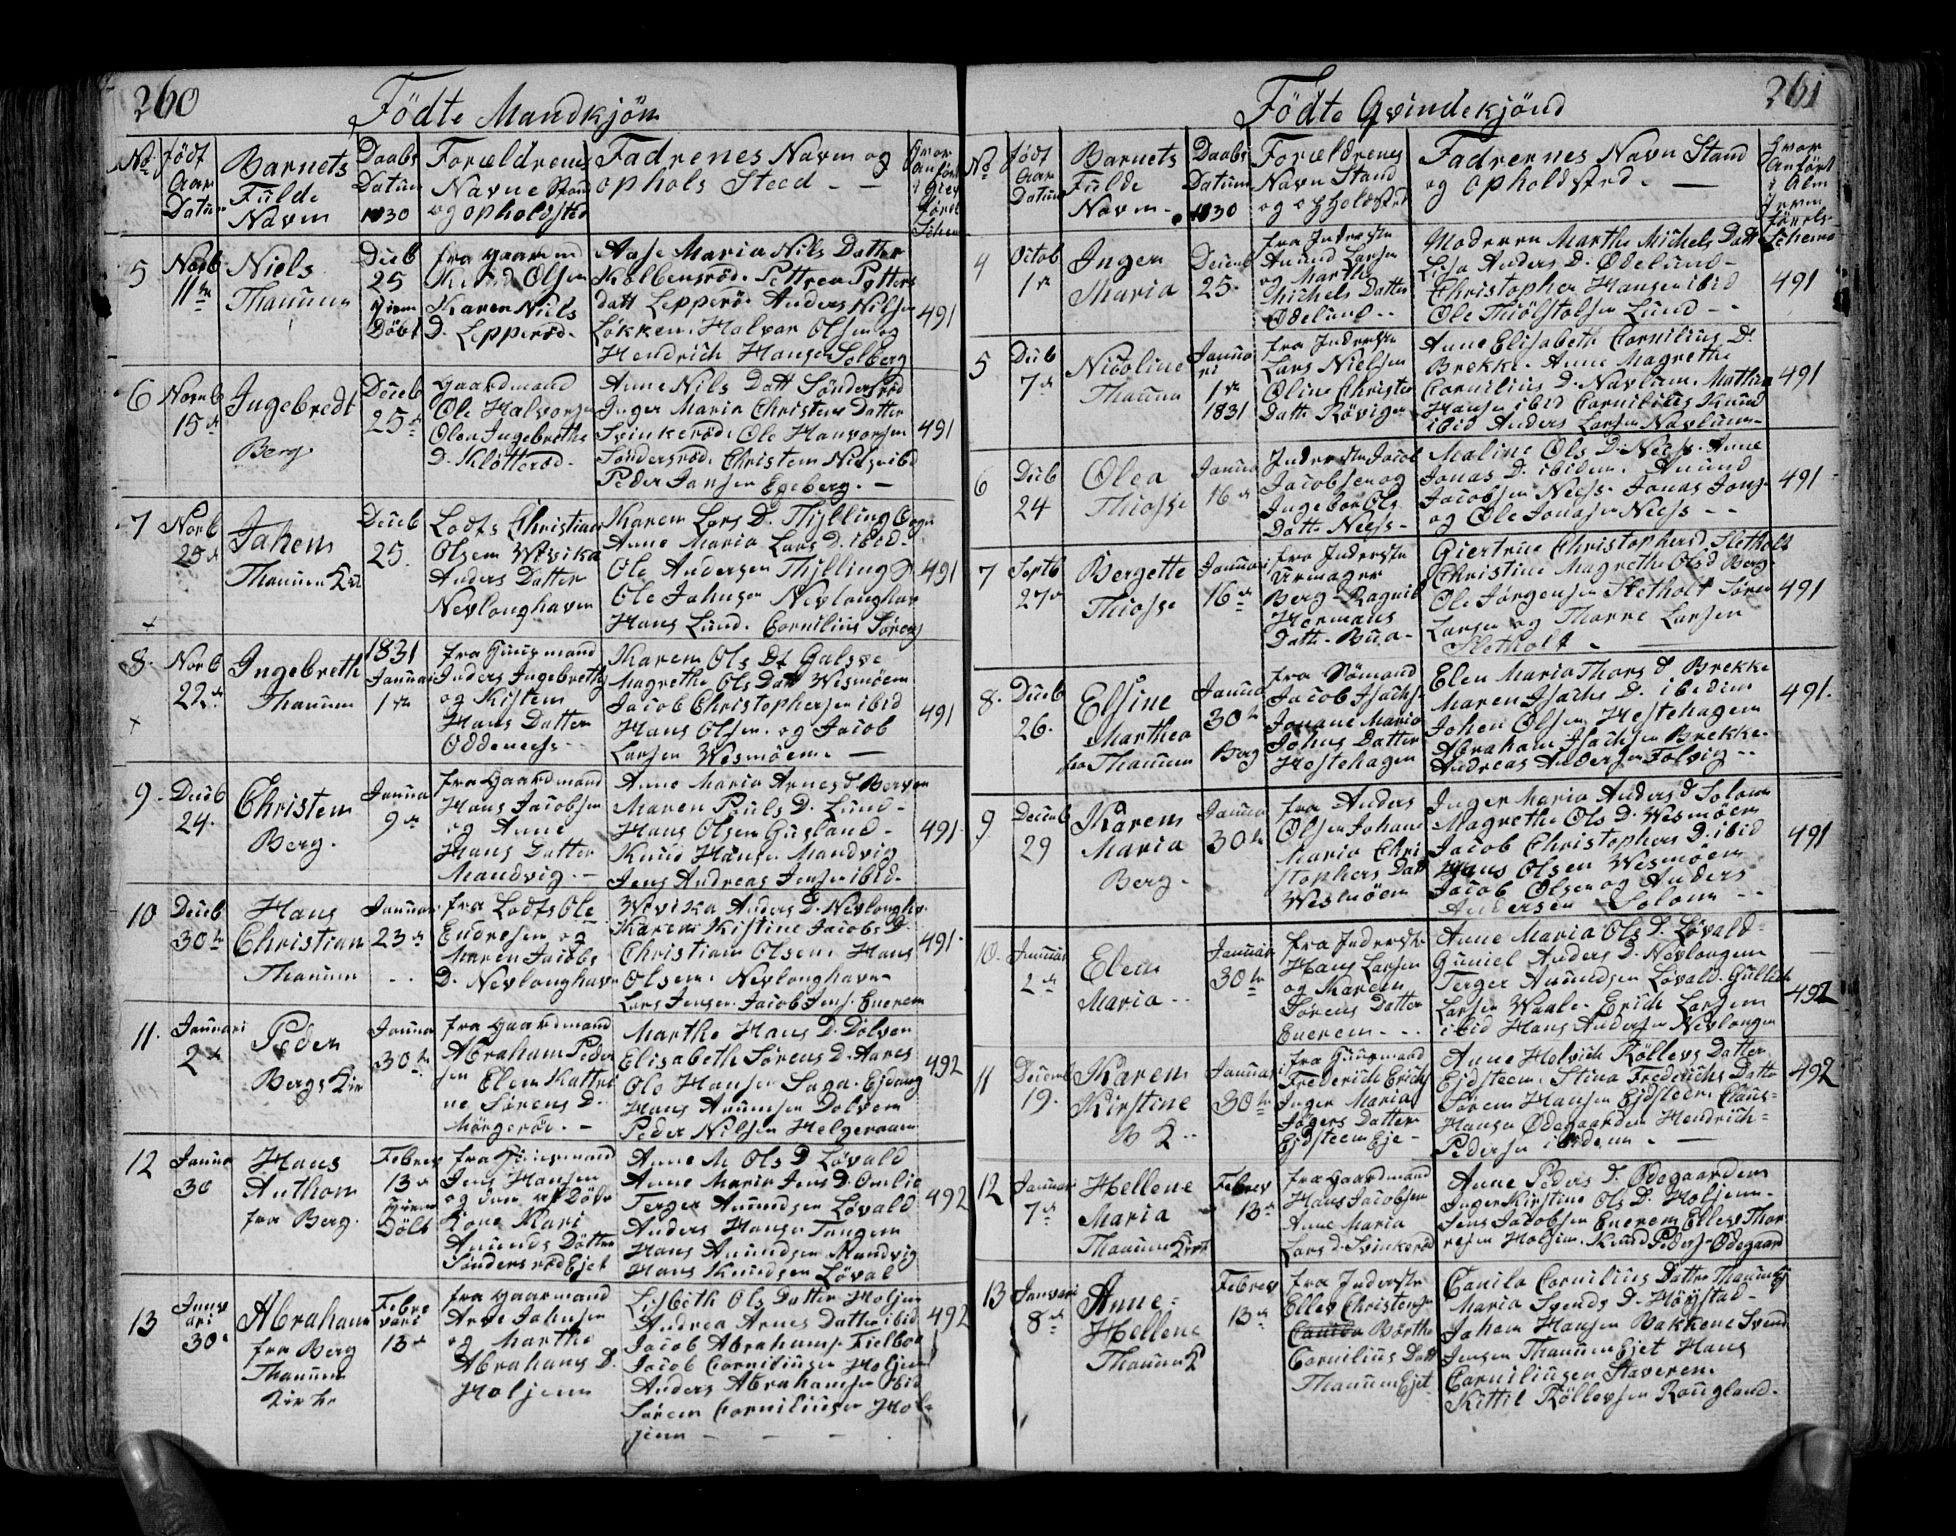 260
Födte Mandkjön
No
födt Aar Datum
Barnets Fulde Navn
Daabs Datum 1830
Forældrenes Navne Stand og opholdsted
Fadrenes Navn og ophols Steed
5
Novb
Niels
Thanum
Deceb
25
hjem
Döbt
fra gaardmd
Knud Olsen
Karen Niels
D. Lepperöd
Aase Maria Nils Datter
Kolbensröd. Pettrea Petters
datt Lepperö. Anders Nilsen
Løkken. Halvar Olsen og
Hendrich Hansen Solberg
491
6
Novb
15de
Ingebredt
Berg
Deceb
25de
Gaardmand
Ole Halvorsen
Olea Ingebreths
D. Klötteröd
Anne Nils Datt Sönderöd
Inger Maria Christens Datter
Svinkeröd. Ole Hanvorsen
Söndersröd. Christen Nilsen ibd
Peder Jansen Egeberg.
491
7
Novb
25de
Jahen
Thanum
Deceb
25.
Lods Christian
Olsen Wivika
Anders Datter
Nevlonghavn
Karen Lars D. Thylling
Anne Maria Lars D. ibid
Ole Andersen Thylling
Ole Jahnsen Nevlonghav
Hans Lund. Cornilius Sörens
491
8.
Novb
22de
Ingebreth
Thanum
1831
Januari
1te
fra Huusmand
Anders Ingebrethsen
og Kisten
Hans Datter
Oddenes
Karen Ols Dt
Magrethe Ols Datt Wismöen
Jacob Christophersen ibid
Hans Olsen. og Jacob
Larsen Wesmöen.
491
9.
Deceb
24.
Christen
Berg.
Janua
9de
fra Gaardmand
Hans Jacobsen
og Anne
Hans Datter
Mandvig.
Anne Maria Arnes D. Berven
Maren Pauls D. Lund
Hans Olsen Gusland
Knud Hansen Mandvig
Jens Andreas Jensen ibid.
491
10
Deceb
30te
Hans
Christian
Thanum
Januari
23de
fra Lods Ole
Endresen og
Maren Jacobs
D. Nevlonghavn
Wivika Anders D. Nevlonghv.
Karen Kistine Jacobs D.
Christian Olsen. Hans
Olsen. Nevlonghavn
Lars Jensen. Jacob Jens. Everen
491
11.
Januari
2de
Peder
Bergs Kir
Janua
30te
fra Gaardmand
Abraham Peder
sen Elen Kattri
ne Sörens D.
Mörgeröd.
Marthe Hans D. Dölven
Elisabeth Sörens D. Aares
Ole Hansen Saga. Ejdang
Hans Anunsen Dolven
Peder Nilsen Helgeraaen
492
12
Janua
30
Hans
Anthon
fra Berg.
Febrev
13de
hjem
Döbt
fra Huusmand
Jens Hansen
Kone Mari
Anunds Datter
Söndersröd Ejet
Anne M Ols D Lövald
Anne Maria Jens D. Omlie
Terger Anundsen Lövald
Anders Hansen Tangen
Hans Anundsen Mandvig
Hans Knudsen Löval
492
13
Janu
ari
30
Abraham
fra Berg
Thanum
Kirke
Febre
vari
13de
fra Gaardmand
Arve Jahnsen
og Marthe
Abrahams D.
Holjem
Lisbeth Ols Datter Holjen
Andrea Arnes Datter ibid
Jacob Abrahams Fielboe
Jacob Corniliusen Holjem
Anders Abrahamsen Ibid
Sören Corniliusen Hol-
jem
492
261
Födte Qvindekjönd
No
födt Aar Datum
Barnets Fulde Navn.
Daabs Datum 1830
Forældrenes Navn Stand og opholdsted
Fadrernes Navn Stand og opholdsted.
Hvor anfört i Alm
4
Octob
1te
Inger
Maria
Decemb
25.
fra Inderste
Anund Larsen
og Marthe
Michels Datter
Ödelund
Moderen Marthe Michels Datt
Lisa Anders D. Ödelund
Christopher Hansen ibid
Ole Thiölstolsen Lund
491
5
Deceb
7de
Nicoline
Thanum
Janua
ri
1te
1831
fra Inderste
Lars Nielsen
Oline Christens
Datt. Rövigen
Anne Elisabeth Cornilius D.
Brekke. Anne Magrethe
Cornilius D. Navlum. Mathias
Hansen ibid Cornilius Knud
ibid Anders Larsen Navlum
491
6
Deceb
24
Olea
Thiosse
Janua
16de
Inderste Jacob
Jacobsen og
Ingebor Ols
Datt. Neess
Maline Ols D. Neess. Anne
Jonas D. ibidem. Anund
Jacobsen Neess. Jonas Jons
og Ole Jonasen Neess
491
7
Septb
27de
Bergette
Thiosse
Januari
16de
fra Inderste
Urmager
Berg Ragnil
Hermans
Datt. Bua
Giertrue Christophers D. Sletholt
Christine Magrethe Ols D Berg.
Ole Jörgensen Sletholt Sören
Larsen og Thorre Larsen
Sletholt
491
8.
Deceb
26.
Elsine
Marthea
fra Thanum
Janua
30te
Berg
fra Sömand
Jacob Isachs
Johane Maria
Johns Datter
Hestehagen
Elen Maria Thors D Brekke
Maren Isachs D. ibidem
Johan Olsen Hestehagen
Abraham Isachsen Brekke.
Andreas Andersen Folvig
491.
9
Decemb
29
Karen
Maria
Berg.
Janua
30te
fra Anders
Olsen Johan
Maria Chri
stophers Dat
Wesmöen
Inger Maria Anders D Solom
Magrethe Ols D. Wesmöen
Jacob Christophers D. ibid
Hans Olsen Wesmöen
Jacob Olsen og Anders
Andersen Solom
491
10.
Januar
2de
Elen
Maria
Januar
30te
fra Inderste
Hans Larsen
og Maren
Sörens Datter
Everen
Anne Maria Ols D. Lövald
Guniel Anders D. Nevlongen
Terger Anundsen Lövald. Gullich
Larsen Waale. Erich Larsen
ibid Hans Andersen Nevlongen
492
11
Decemb
19.
Karen
Kirstine
B K
Januar
30te
fra Huusmand
Frederich Erichs
Inger Maria
Jögers Datter
Ejdsteen Eje
Anne Helvich Röllevs Datter
Ejdsteen. Stina Frederichs Datte
Sören Hansen Ejdsteen. Claus
Hansen Ödegaarden Hendrich
Pedersen ibidem.
492
12
Januar
7de
Hellene
Maria
Thanum Kirk
Febrev
13de
fra Gaardmand
Hans Jacobsen
Anne Maria
Lars D. Svinkeröd
Anne Peders D. Ödegaarden
Inger Kirstine Ols D. Holjem
Jens Jacobsen Everen Ellev Thor
resen Holjem. Knud Peders. Ödegaard
13
Januari
8de
Anne
Hellene
Thanum K
Febrev
13de
fra Inderste
Ellev Christens
Börthe
Cornilius Datt
Thanum Ejet
Canila Cornilius Datter Thanum Ej
Maria Svends D. Högstad
Jahen Hansen Bakkene Svend
Jensen Thanum Ejet Hans
Corniliusen Staveren
Kittil Röllevsen Rougland.